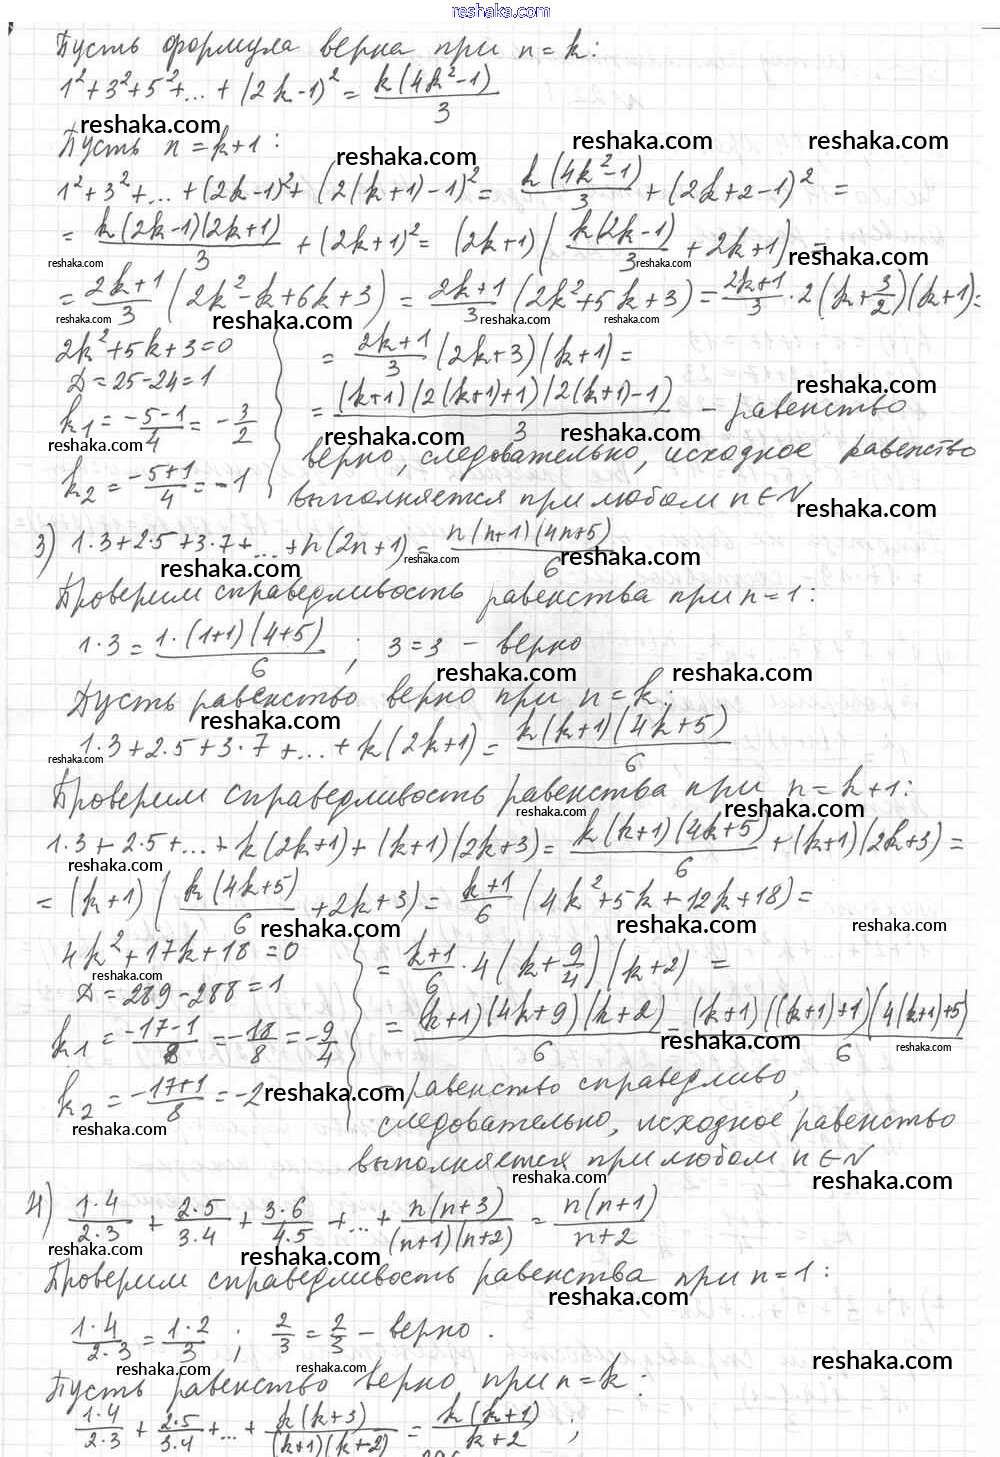 reshaka.com
Пусть формула верна при n = k:
1² + 3² + 5² + ... + (2k-1)² = k(4k²-1)/3
reshaka.com
Пусть n = k+1:
reshaka.com reshaka.com reshaka.com
1² + 3² + ... + (2k-1)² + (2(k+1)-1)² = k(4k²-1)/3 + (2k+2-1)² =
= k(2k-1)(2k+1)/3 + (2k+1)² = (2k+1)(k(2k-1)/3 + 2k+1) =
reshaka.com reshaka.com reshaka.com
= (2k+1)/3 (2k²-k+6k+3) = (2k+1)/3 (2k²+5k+3) = (2k+1)/3 · 2(k+3/2)(k+1) =
reshaka.com reshaka.com reshaka.com reshaka.com
2k²+5k+3=0 = (2k+1)/3 (2k+3)(k+1) =
D = 25-24 = 1
reshaka.com
k₁ = (-5-1)/4 = -3/2 = (k+1)(2(k+1)+1)(2(k+1)-1)/3 – равенство
reshaka.com reshaka.com reshaka.com
верно, следовательно, исходное равенство
k₂ = (-5+1)/4 = -1 выполняется при любом n∈N
reshaka.com
3) 1·3+2·5+3·7+...+n(2n+1) = n(n+1)(4n+5)/6
reshaka.com reshaka.com reshaka.com
Проверим справедливость равенства при n=1:
1·3 = 1·(1+1)(4+5)/6 ; 3=3 – верно
reshaka.com reshaka.com
Пусть равенство верно при n=k:
reshaka.com
1·3+2·5+3·7+...+k(2k+1) = k(k+1)(4k+5)/6
reshaka.com
Проверим справедливость равенства при n=k+1:
reshaka.com reshaka.com
1·3+2·5+...+k(2k+1)+(k+1)(2k+3) = k(k+1)(4k+5)/6 + (k+1)(2k+3) =
reshaka.com
= (k+1)(k(4k+5)/6 + 2k+3) = (k+1)/6 (4k²+5k+12k+18) =
reshaka.com reshaka.com reshaka.com
4k²+17k+18=0 = (k+1)/6 · 4(k+9/4)(k+2) =
reshaka.com
D = 289-288 = 1
k₁ = (-17-1)/8 = -18/8 = -9/4 = (k+1)(4k+9)(k+2)/6 = (k+1)((k+1)+1)(4(k+1)+5)/6
reshaka.com reshaka.com
k₂ = (-17+1)/8 = -2 – равенство справедливо,
reshaka.com
следовательно, исходное равенство
reshaka.com
выполняется при любом n∈N
reshaka.com reshaka.com
4) 1·4/2·3 + 2·5/3·4 + 3·6/4·5 + ... + n(n+3)/(n+1)(n+2) = n(n+1)/n+2
reshaka.com reshaka.com
Проверим справедливость равенства при n=1:
reshaka.com
1·4/2·3 = 1·2/3 ; 2/3 = 2/3 – верно.
reshaka.com reshaka.com reshaka.com
Пусть равенство верно при n=k:
1·4/2·3 + 2·5/3·4 + ... + k(k+3)/(k+1)(k+2) = k(k+1)/k+2 ;